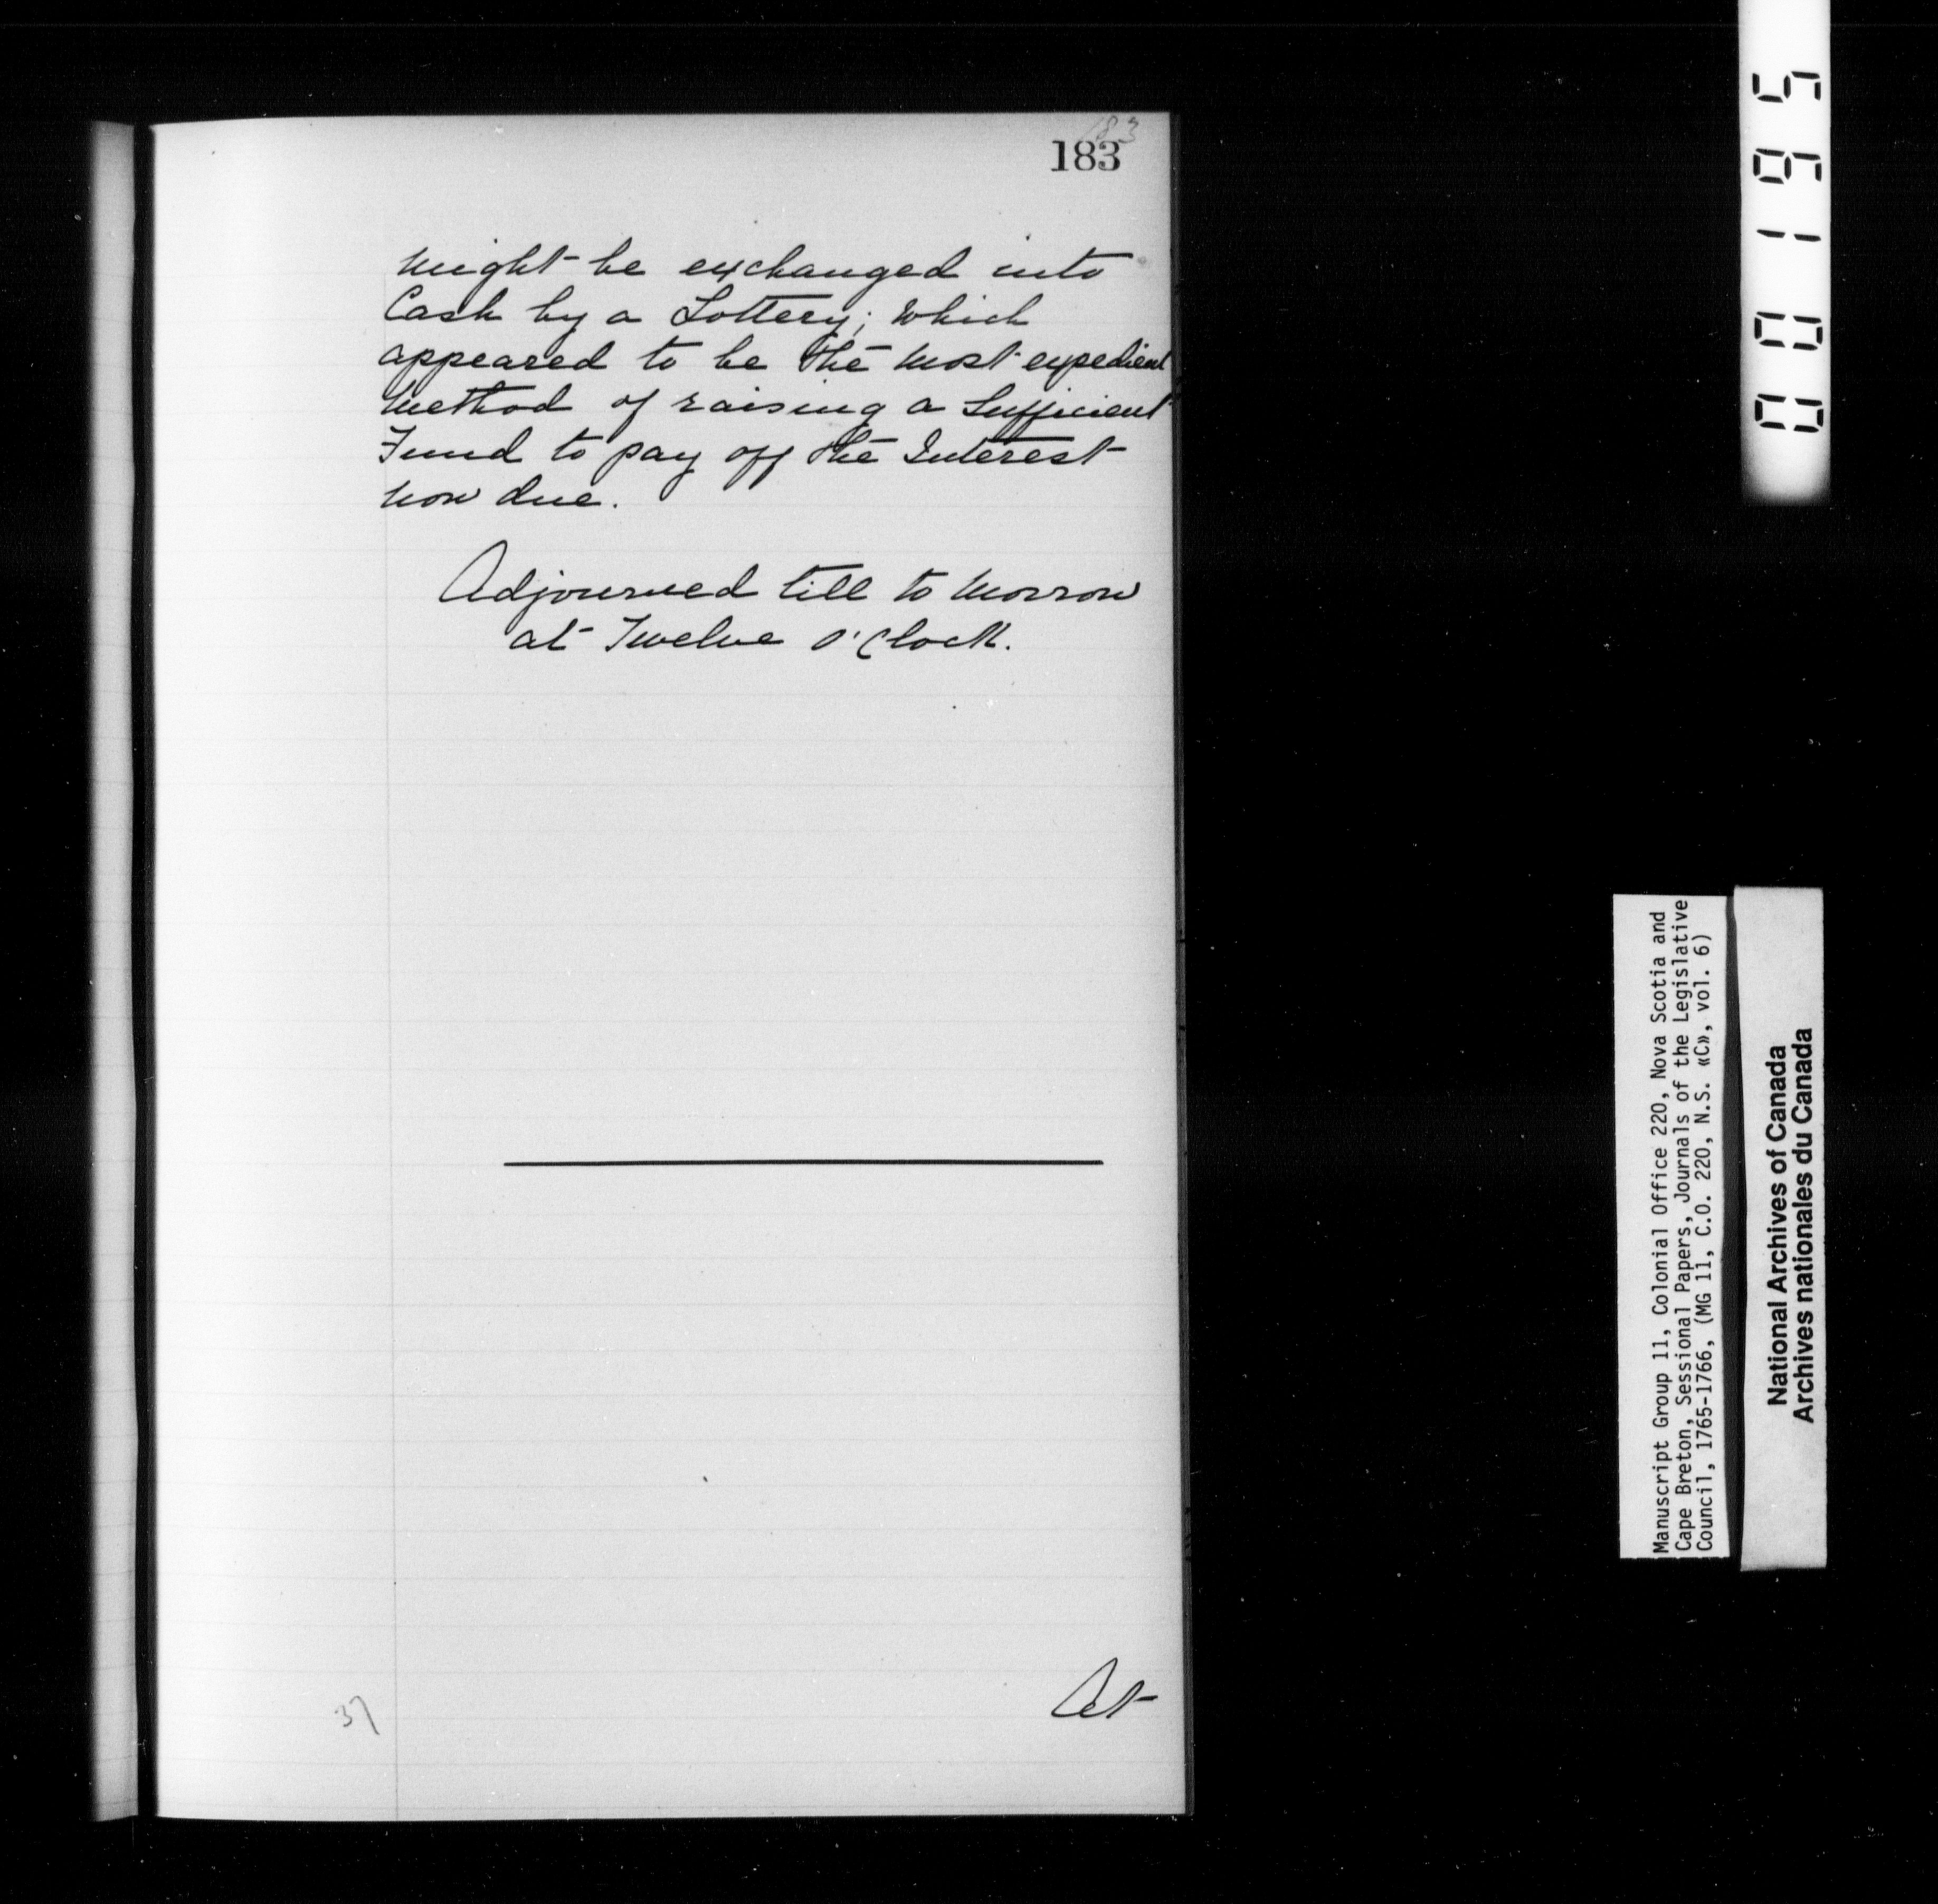 183
183
might be exchanged into
Cash by a Lottery; Which
appeared to be the most expedient
Method of raising a Sufficient
Fund to pay off the Interest
now due.
Adjourned till to Morrow
at Twelve O'Clock.
At
37
000195
Manuscript Group 11, Colonial Office 220, Nova Scotia and
Cape Breton, Sessional Papers, Journals of the Legislative
Council, 1765-1766, (MG 11, C.O. 220, N.S. «C», vol. 6)
National Archives of Canada
Archives nationales du Canada